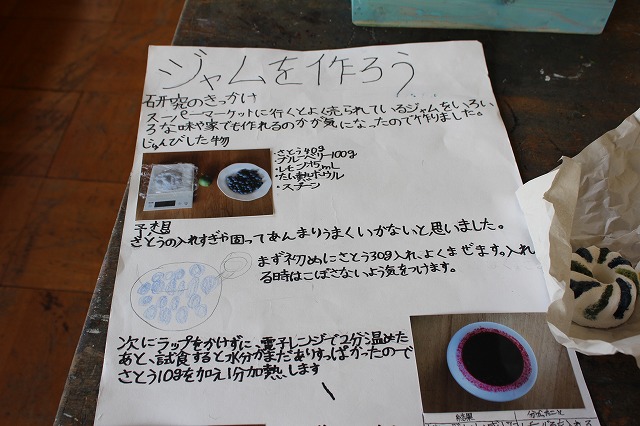 ジャムを作ろう
研究のきっかけ
スーパーマーケットに行くとよく売られているジャムをいろい
ろな味や家でも作れるのかが気になったので作りました。
じゅんびした物
・さとう40g
・ブルーベリー100g
・レモン汁5mL
・たい熱ボウル
・スプーン
予想
さとうの入れすぎや固ってあんまりうまくいかないと思いました。
まず初めにさとう30g入れ、よくまぜます。入れ
る時はこぼさないよう気をつけます。
次にラップをかけずに、電子レンジで2分温めた
あと、試食すると水分がまだありすっぱかったので
さとう10gを加え1分加熱します
結果